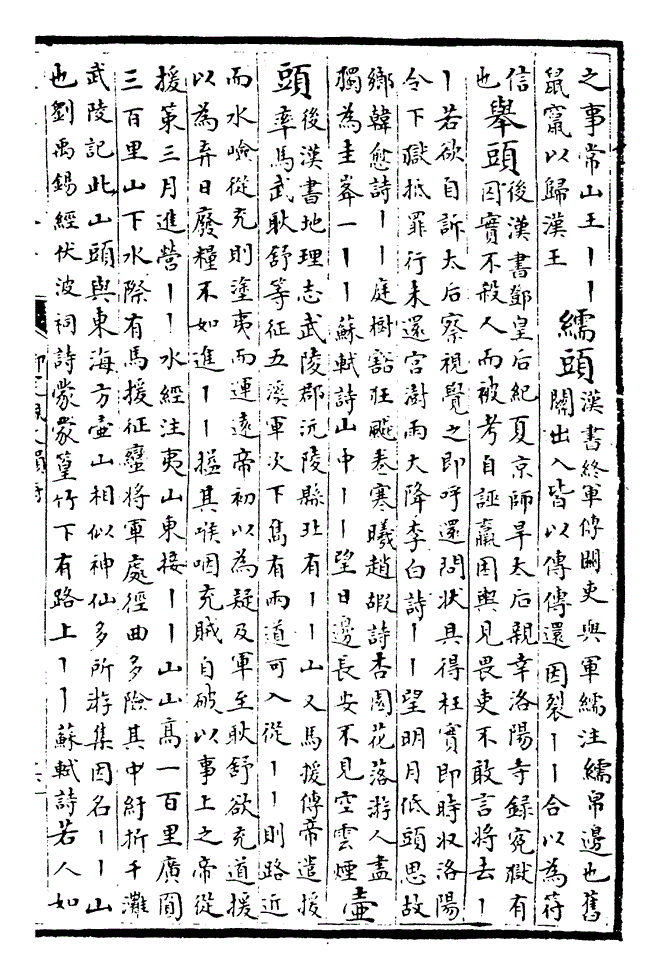 之事常山王丨丨
鼠竄以歸漢王
繻頭
漢書終軍傳關吏與軍繻注繻帛邊也舊
關出入皆以傳傳還因裂丨丨合以為符
信
也
舉頭
後漢書鄧皇后紀夏京師旱太后親幸洛陽寺錄寃獄有
囚實不殺人而被考自誣羸困輿見畏吏不敢言將去丨
丨若欲自訴太后察視覺之即呼還問狀具得枉實即時收洛陽
令下獄抵罪行未還宮澍雨大降李白詩丨丨望明月低頭思故
鄉韓愈詩丨丨庭樹豁狂飈卷寒曦趙嘏詩杏園花落游人盡
獨為圭峯一丨丨蘇軾詩山中丨丨望日邊長安不見空雲煙
壺
頭
後漢書地理志武陵郡沅陵縣北有丨丨山又馬援傳帝遣援
率馬武耿舒等征五溪軍次下雋有兩道可入從丨丨則路近
而水嶮從充則塗夷而運遠帝初以為疑及軍至耿舒欲充道援
以為弃日廢糧不如進丨丨搤其喉咽充賊自破以事上之帝從
援策三月進營丨丨水經注夷山東接丨丨山山高一百里廣圓
三百里山下水際有馬援征蠻將軍處徑曲多險其中紆折千灘
武陵記此山頭與東海方壺山相似神仙多所游集因名丨丨山
也劉禹錫經伏波祠詩蒙蒙篁竹下有路上丨丨蘇軾詩若人如